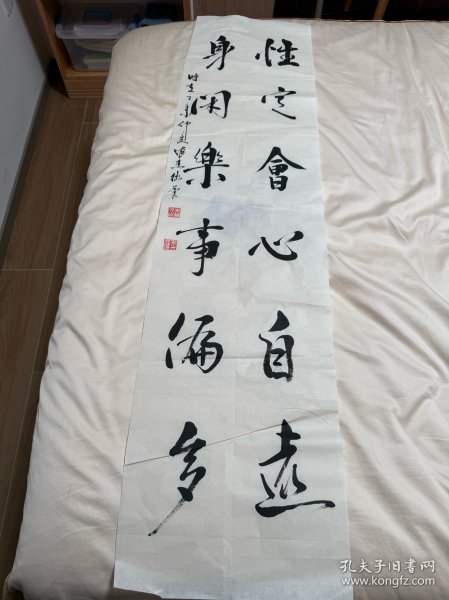 性定會心自遠
身閑樂事偏多
孔夫子旧书网
www.kongfz.com